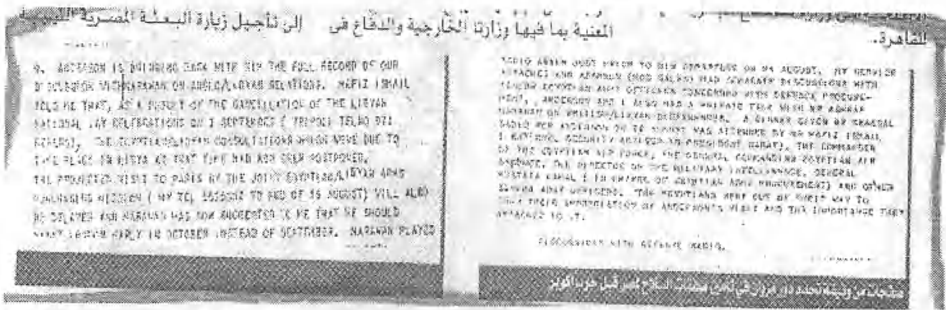 المعنية بما فيها وزارتا الخارجية والدفاع فى إلى تأجيل زيارة البعثة المصرية
للقاهرة.
9. ANDERSON IS BRINGING BACK WITH HIM THE FULL RECORD OF OUR
DISCUSSION WITH MARAWAN ON ANGLO/LIBYAN RELATIONS. HAFIZ ISMAIL
TOLD ME THAT, AS A RESULT OF THE CANCELLATION OF THE LIBYAN
NATIONAL DAY CELEBRATIONS ON 1 SEPTEMBER ( TRIPOLI TELNO
THE EGYPTIAN/LIBYAN CONSULTATIONS WHICH WERE DUE TO
TAKE PLACE IN LIBYA AT THAT TIME HAD NOW BEEN POSTPONED.
THE PROJECTED VISIT TO PARIS BY THE JOINT EGYPTIAN/LIBYAN ARMS
PURCHASING MISSION ( MY TEL TO MOD OF 15 AUGUST) WILL ALSO
BE DELAYED AND MARAWAN HAS NOW SUGGESTED TO ME THAT HE SHOULD
VISIT LONDON EARLY IN OCTOBER INSTEAD OF SEPTEMBER. MARAWAN PLAYED
RADIO AGAIN JUST PRIOR TO HIS DEPARTURE ON AUGUST. MY SERVICE
ATTACHES AND (MOD SALES) HAD SEPARATE DISCUSSIONS WITH
SENIOR EGYPTIAN ARMY OFFICERS CONCERNED WITH DEFENCE PROCURE-
MENT, ANDERSON AND I ALSO HAD A PRIVATE TALK WITH DR ASHRAF
MARAWAN ON BRITISH/LIBYAN A DINNER GIVEN BY GENERAL
SADIQ FOR ANDERSON ON AUGUST WAS ATTENDED BY MR HAFIZ ISMAIL
( NATIONAL SECURITY ADVISER TO PRESIDENT SADAT), THE COMMANDER
OF THE EGYPTIAN AIR FORCE, THE GENERAL COMMANDING EGYPTIAN AIR
DEFENCE, THE DIRECTOR OF THE MILITARY INTELLIGENCE, GENERAL
MUSTAFA KAMAL ( IN CHARGE OF EGYPTIAN ARMS PROCUREMENT) AND OTHER
SENIOR ARMY OFFICERS. THE EGYPTIANS WENT OUT OF THEIR WAY TO
SHOW THEIR APPRECIATION OF ANDERSON'S VISIT AND THE IMPORTANCE THEY
ATTACHED TO IT.
DISCUSSIONS WITH GENERAL SADIQ.
صفحات من وثيقة تحدد دور مروان في تأمين صفقات السلاح لمصر قبل حرب أكتوبر